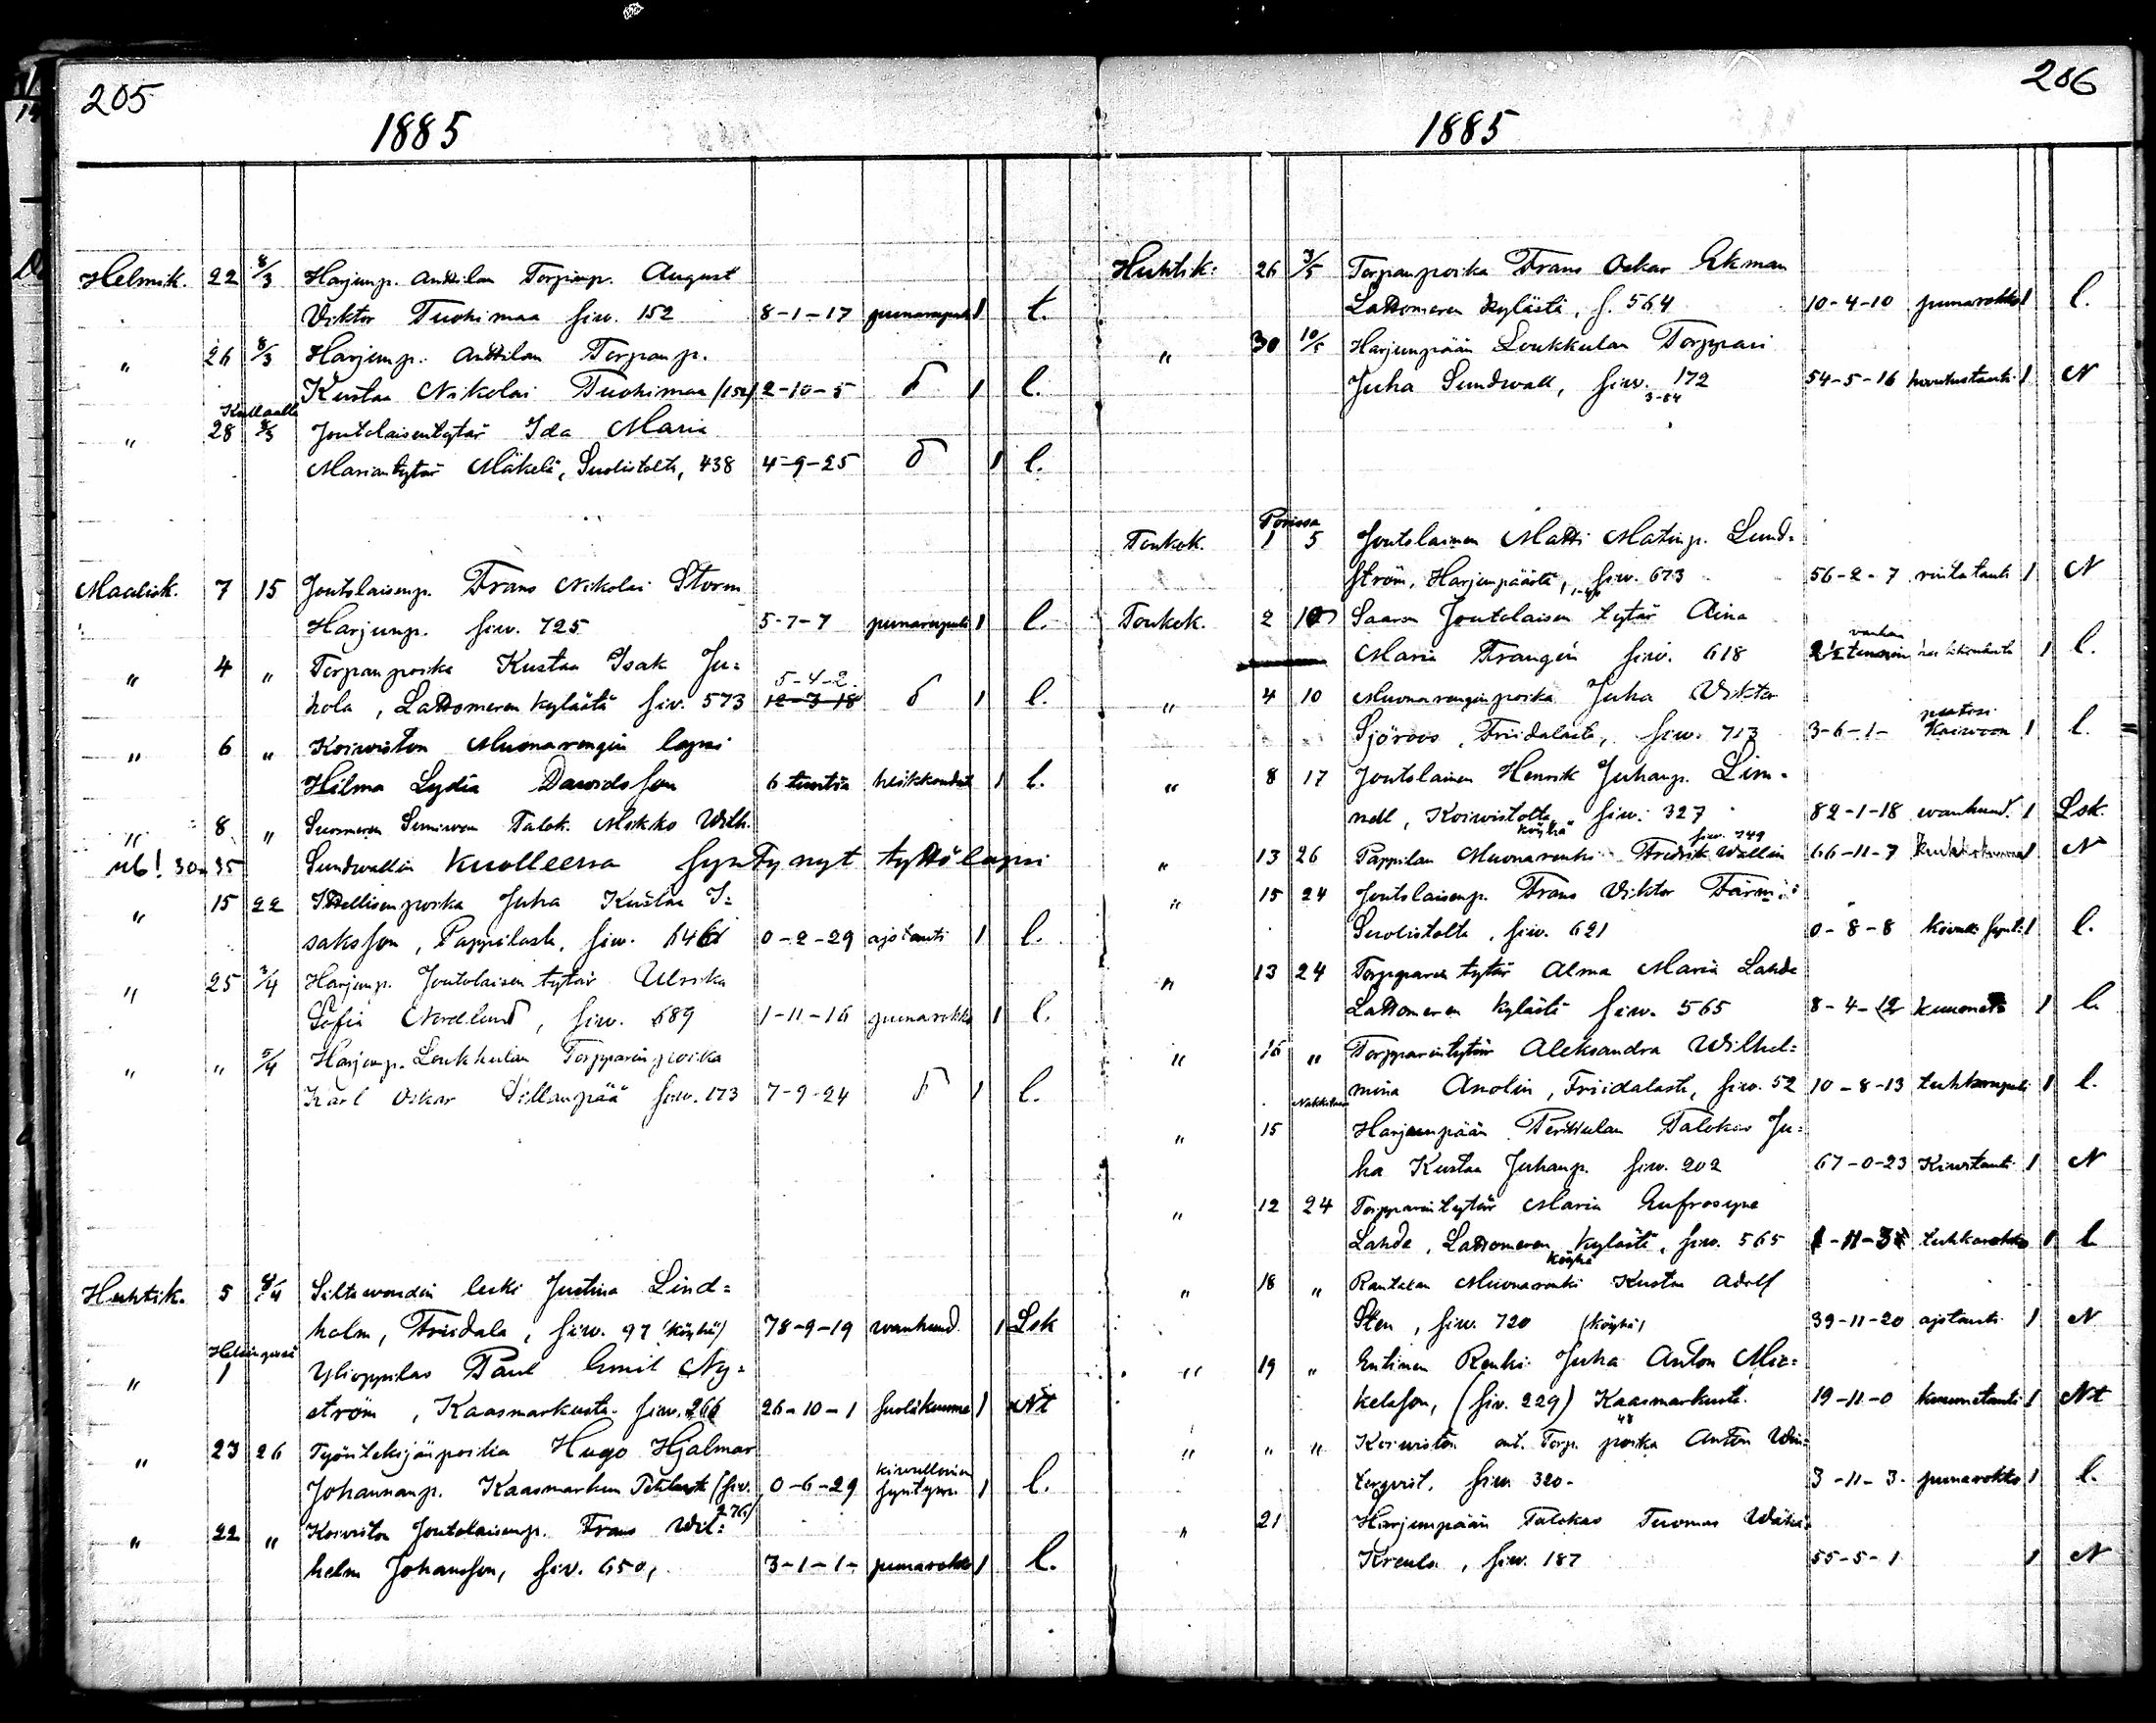 205
1885
Helmik. 22 8/3 Harjunp. Anttilan Torpanp. August
Viktor Tuohimaa siw. 152 8-1-17 punarupuli 1 l.
" 26 8/3 Harjunp. Anttilan Torpanp.
Kustaa Nikolai Tuohimaa (152) 2-10-5 1 l.
Kullaalla
" 28 8/3 Joutolaisentytär Ida Maria
Mariantytär Mäkelä, Suolistolta, 438 4-9-25 1 l.
Maalisk. 7 15 Joutolaisenp. Frans Nikolai Storm
Harjunp. siw. 725 5-7-7 punarupuli 1 l.
" 4 " Torpanpoika Kustaa Isak Ju=
5-4-2.
hola, Lattomeren kylästä siw. 573 12-3-18 1 l.
" 6 " Koiwiston Muonarengin lapsi
Hilma Lydia Dawidsson 6 tuntia heikkoudesta 1 l.
" 8 " Suosmeren Talok. Mikko Wilh.
Nb! 30a 35 Sundwallin kuolleena syntynyt tyttölapsi
" 15 22 Itsellisenpoika Juha Kustaa I=
saksson, Pappilasta, siw. 646 0-2-29 ajotauti 1 l.
" 25 3/4 Harjunp. Joutolaisen tytär Ulrika
Sofia Nordlund, siw. 689 1-11-16 punarokko 1 l.
" " 5/4 Harjunp. Loukkulan Torpparinpoika
Karl Oskar Sillanpää siw. 173 7-9-24 1 l.
Huhtik. 5 /4 Siltawoudin leski Justina Lind=
holm, Friidala, siw. 97 (köyhä) 78-9-19 wanhuud. 1 Lsk
Helsingissä
" 1 Ylioppilas Paul Emil Ny=
ström, Kaasmarkusta siw. 266 26-10-1 suolikuume 1 Nt
" 23 26 Työntekijänpoika Hugo Hjalmar
Johannanp. Kaasmarkun (siw. 0-6-29 kiwulloisna syntynyt 1 l.
276)
" 22 " Koiwiston Joutolaisenp. Frans Wil=
helm Johansson, siw. 650, 3-1-1- punarokko 1 l.
206
1885
Huhtik: 26 3/5 Torpanpoika Frans Oskar Ekman
Lattomeren kylästä, s. 564 10-4-10 punarokko 1 l.
" 30 10/5 Harjunpään Loukkulan Torppari
Juha Sundwall, siw. 172 54-5-16 1 N
Porissa
Toukok. 1 5 Joutolainen Matti Matinp. Lund=
ström, Harjunpäästä, siw. 673 56-2-7 rintatauti 1 N
Toukok. 2 10 Saaren Joutolaisen tytär Aina
Maria Frangén siw. 618 2½ tunnin vanhana 1 l.
" 4 10 Muonarenginpoika Juha Viktor
Sjöroos, Friidalasta, siw. 713 3-6-1- putosi kaiwoon 1 l.
" 8 17 Joutolainen Henrik Juhanp. Lin=
nell, Koiwistolta siw. 327 82-1-18 wanhuud. 1 Lsk.
köyhä siw. 749
" 13 26 Pappilan Muonarenki Fredrik Wallin 66-11-7 1 N
" 15 24 Joutolaisenp. Frans Viktor Färm
Suolistolta, siw. 621 0-8-8 1 l.
" 13 24 Torpparin tytär Alma Maria Lahde
Lattomeren kylästä siw. 565 8-4-12 kuumet. 1 l.
" 16 " Torpparintytär Aleksandra Wilhel=
mina Anolin, Friidalasta, siw. 52 10-8-13 tuhkarupuli 1 l.
Nakkilassa
" 15 Harjunpään Perttulan Talokas Ju=
ha Kustaa Juhanp. siw. 202 67-0-23 Kiwitauti 1 N
" 12 24 Torpparintytär Maria Eufrosyne
Lahde, Lattomeren kylästä, siw. 565 1-11-3 tuhkarokko 1 l
köyhä
" 18 " Rantalan Muonarenki Kustaa Adolf
Sten, siw. 720 (köyhä) 39-11-20 ajotauti 1 N
" 19 " Entinen Renki Juha Anton Mic=
kelsson, (siw. 229) Kaasmarkusta. 19-11-0 kuumetauti 1 Nt
" " " Koiwiston ent. Torp. poika Anton Win=
terqvist, siw. 320- 3-11-3. punarokko 1 l.
" 21 Harjunpään Talokas Tuomas Wähä=
Kreula, siw. 187 55-5-1 1 N